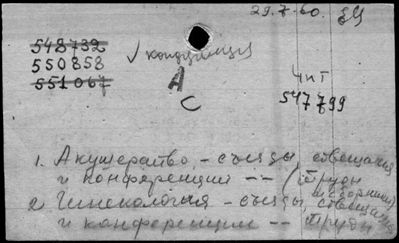 29.7.60.
548732
550858
551067
V кондукция
А
С
Чит
547799
1. Акушерство – съезды, совещания
и конференции -- (Труды
и сборники)
2 Гинекология – съезды, совещания
и конференции -- Труды